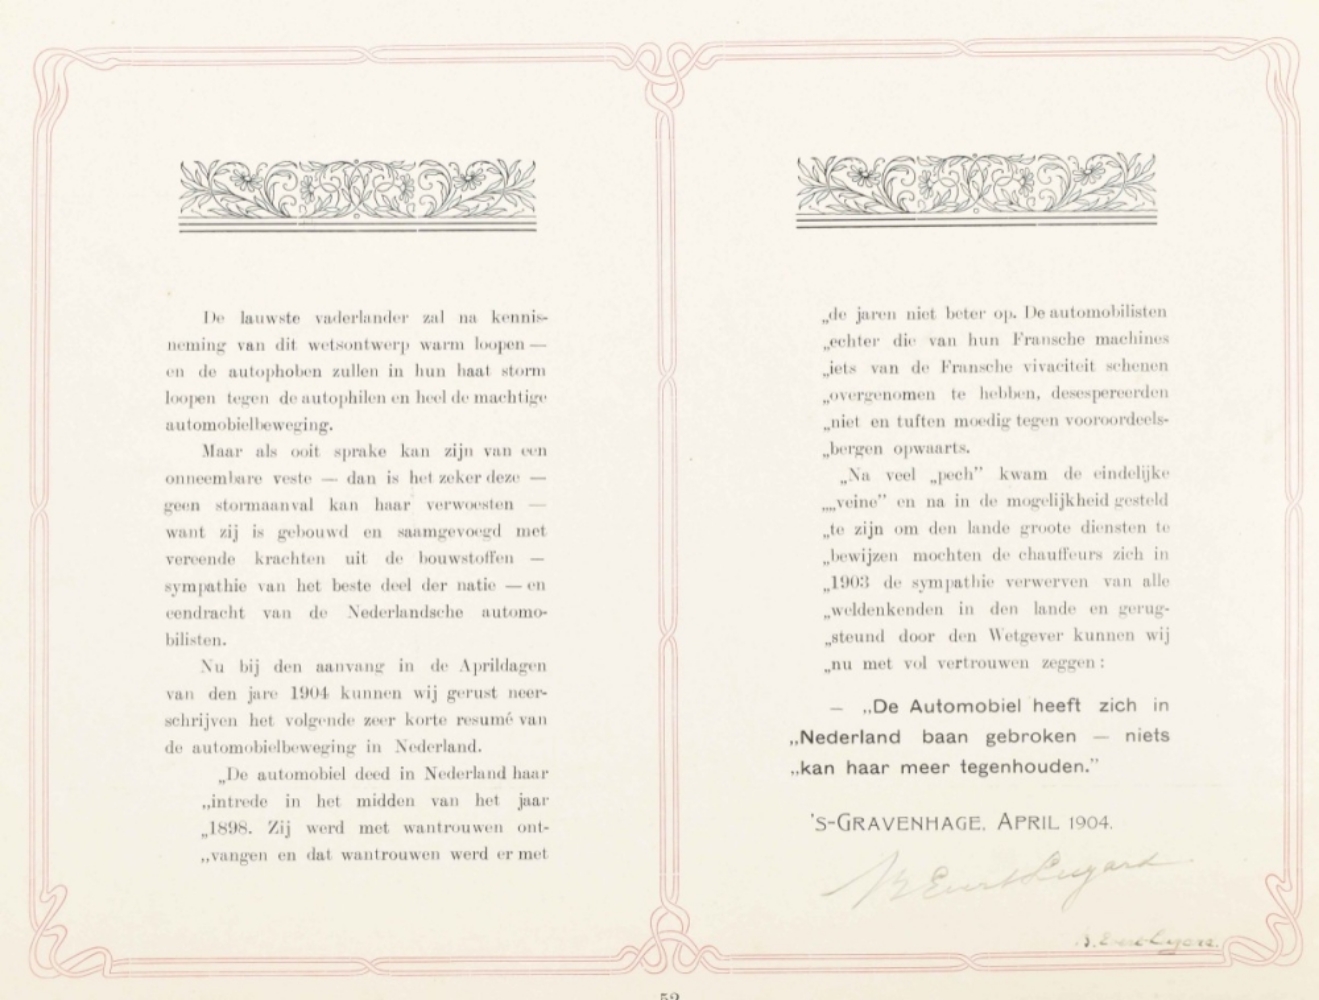 De lauwste vaderlander zal na kennis-
neming van dit wetsontwerp warm loopen —
en de autophoben zullen in hun haat storm
loopen tegen de autophilen en heel de machtige
automobielbeweging.
Maar als ooit sprake kan zijn van een
onneembare veste — dan is het zeker deze —
geen stormaanval kan haar verwoesten —
want zij is gebouwd en saamgevoegd met
vereende krachten uit de bouwstoffen —
sympathie van het beste deel der natie — en
eendracht van de Nederlandsche automo-
bilisten.
Nu bij den aanvang in de Aprildagen
van den jare 1904 kunnen wij gerust neer-
schrijven het volgende zeer korte resumé van
de automobielbeweging in Nederland.
„De automobiel deed in Nederland haar
„intrede in het midden van het jaar
„1898. Zij werd met wantrouwen ont-
„vangen en dat wantrouwen werd er met
„de jaren niet beter op. De automobilisten
„echter die van hun Fransche machines
„iets van de Fransche vivaciteit schenen
„overgenomen te hebben, desespereerden
„niet en tuften moedig tegen vooroordeels-
„bergen opwaarts.
„Na veel „pech” kwam de eindelijke
„„veine” en na in de mogelijkheid gesteld
„te zijn om den lande groote diensten te
„bewijzen mochten de chauffeurs zich in
„1903 de sympathie verwerven van alle
„weldenkenden in den lande en gerug-
„steund door den Wetgever kunnen wij
„nu met vol vertrouwen zeggen:
— „De Automobiel heeft zich in
„Nederland baan gebroken — niets
„kan haar meer tegenhouden.”
's-GRAVENHAGE, APRIL 1904.
52